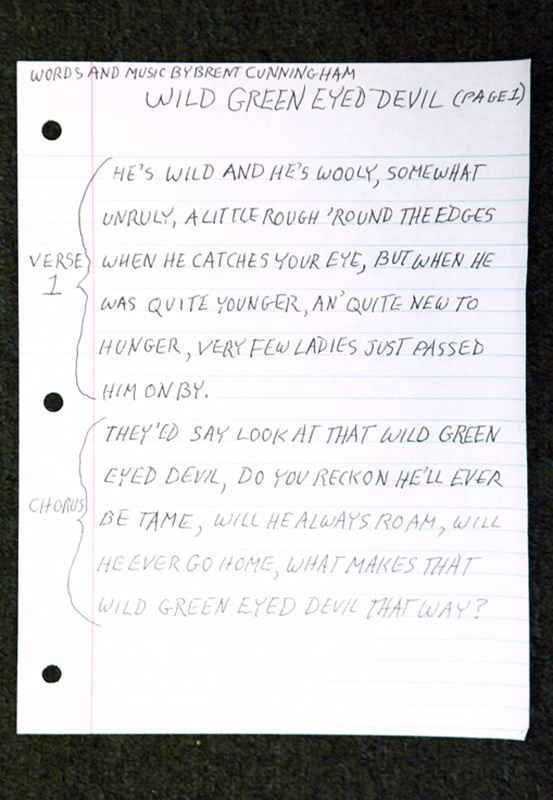 WORDS AND MUSIC BY BRENT CUNNINGHAM
WILD GREEN EYED DEVIL (PAGE 1)
HE'S WILD AND HE'S WOOLY, SOMEWHAT
UNRULY, A LITTLE ROUGH 'ROUND THE EDGES
VERSE 1
WHEN HE CATCHES YOUR EYE, BUT WHEN HE
WAS QUITE YOUNGER, AN' QUITE NEW TO
HUNGER, VERY FEW LADIES JUST PASSED
HIM ON BY.
THEY'ED SAY LOOK AT THAT WILD GREEN
EYED DEVIL, DO YOU RECKON HE'LL EVER
CHORUS
BE TAME, WILL HE ALWAYS ROAM, WILL
HE EVER GO HOME, WHAT MAKES THAT
WILD GREEN EYED DEVIL THAT WAY?